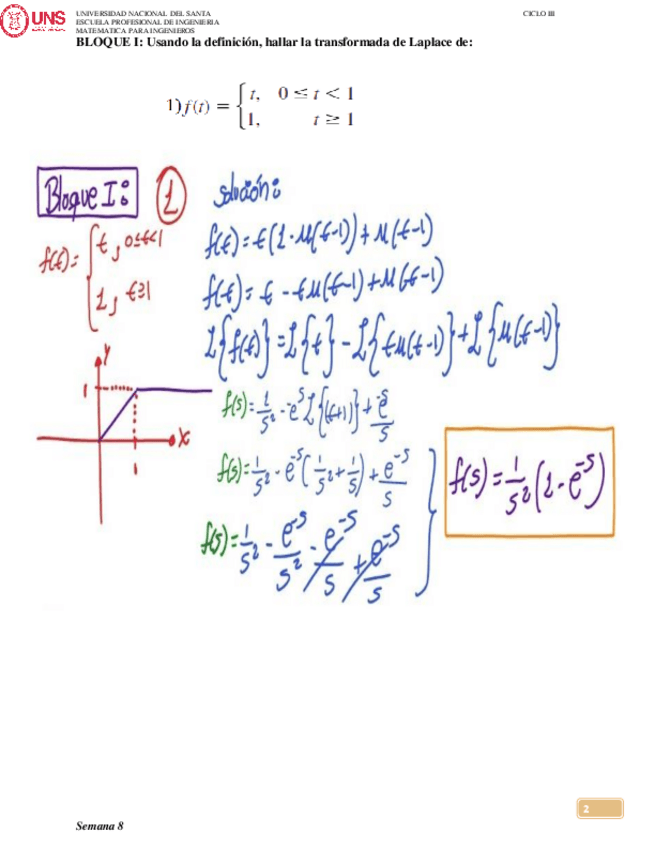 UNS
UNIVERSIDAD NACIONAL DEL SANTA
ESCUELA PROFESIONAL DE INGENIERIA
MATEMATICA PARA INGENIEROS
CICLO III
BLOQUE I: Usando la definición, hallar la transformada de Laplace de:
1) f(t) = { t, 0 ≤ t < 1
1, t ≥ 1
Bloque I: 1
f(t) = { t, 0≤t<1
1, t≥1
Y
1
X
1
solución:
f(t) = t(1·μ(t-1)) + μ(t-1)
f(t) = t - tμ(t-1) + μ(t-1)
L{f(t)} = L{t} - L{tμ(t-1)} + L{μ(t-1)}
f(s) = 1/s² - e^-s L{(t+1)} + e^-s/s
f(s) = 1/s² - e^-s(1/s² + 1/s) + e^-s/s
f(s) = 1/s² - e^-s/s² - e^-s/s + e^-s/s
f(s) = 1/s² (1 - e^-s)
2
Semana 8